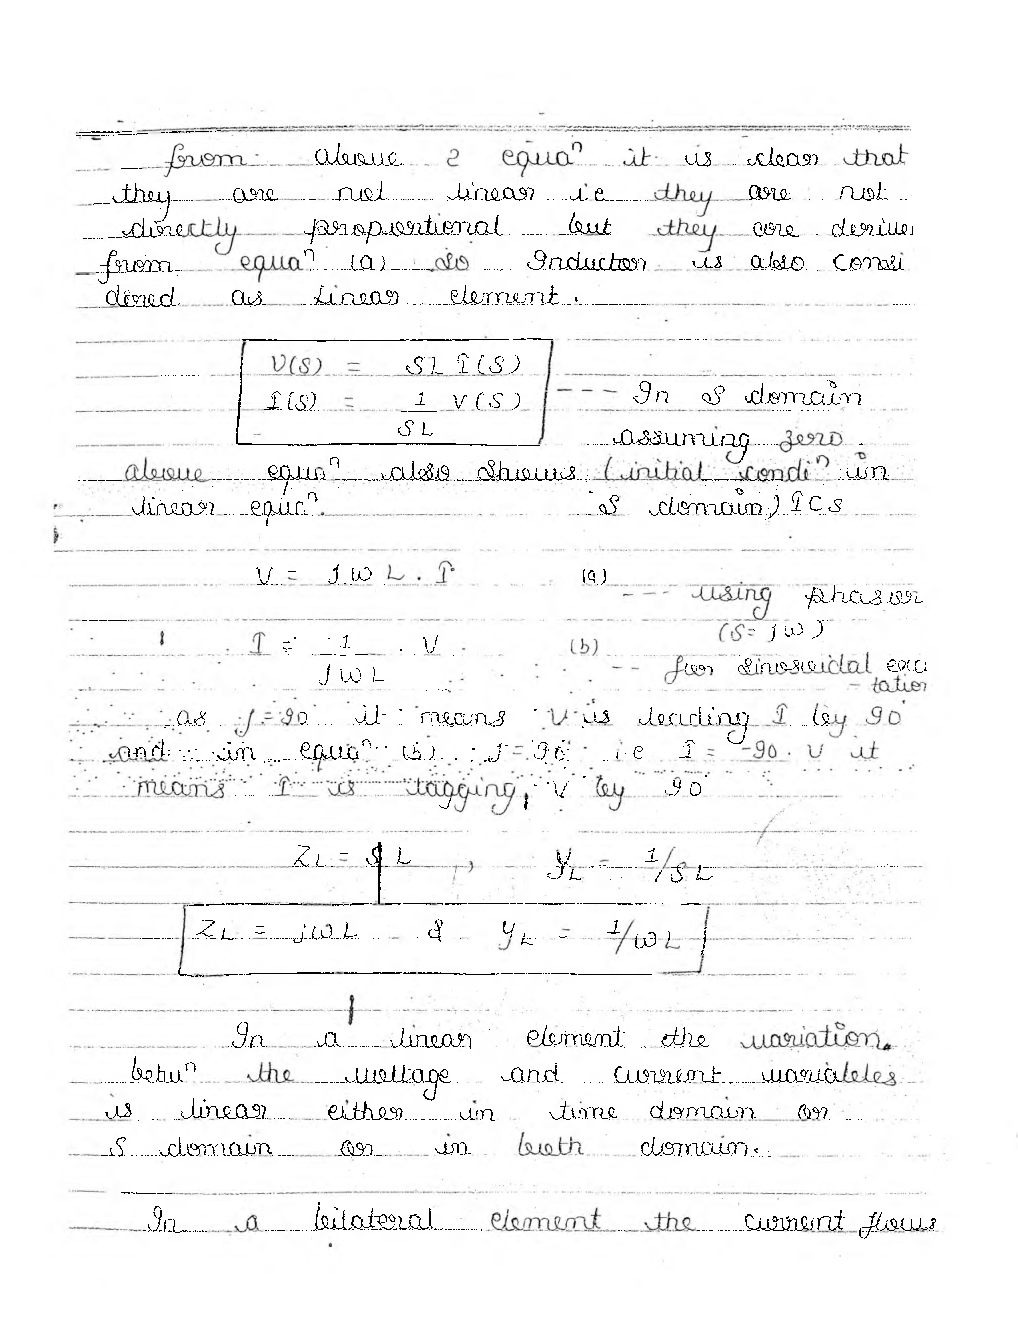 from above 2 equaⁿ it is clear that
they are not linear i.e they are not
directly proportional but they are derive
from equaⁿ (a) so Inductor is also consi
dered as linear element.
V(S) = SL I(S)
I(S) = 1/SL V(S)
--- In S domain
assuming zero
above equaⁿ also shows (initial condiⁿ in
linear equaⁿ. S domain) ICS
V = jωL . I (a)
--- using phasor
(S=jω)
I = 1/jωL . V (b)
-- for sinosoidal exci
-tation
as j=90 it means V is leading I by 90
and in equaⁿ (b) j=90 i e I = -90. V it
means I is lagging, V by 90
ZL = SL , YL = 1/SL
ZL = jωL & yL = 1/ωL
In a linear element the variation.
betwⁿ the voltage and current variables
is linear either in time domain or
S domain or in both domain.
In a bilateral element the current flows